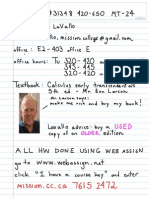 #31348 420-650 MT-24
LaVallo
lavallo.mission.college@gmail.com
office: E2-403 office E
office hours: Tu 320-420
345-420
320-420
Textbook: Calculus early transcendentals
5th ed - Mr. Ron Larson
Mr Larson says:
make me rich and buy my book!
Lavallo advice: buy a USED
copy of an OLDER edition
ALL HW DONE USING WEB ASSIGN
go to www.webassign.net
click "I have a course key" and enter
mission.cc.ca 7615 2472